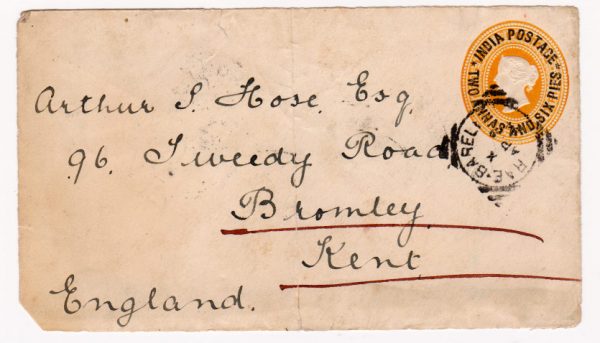 INDIA POSTAGE
TWO ANNAS AND SIX PIES
RAE-BAREL
AP
Arthur S. Hose, Esq.
96. Tweedy Road
Bromley
Kent
England.